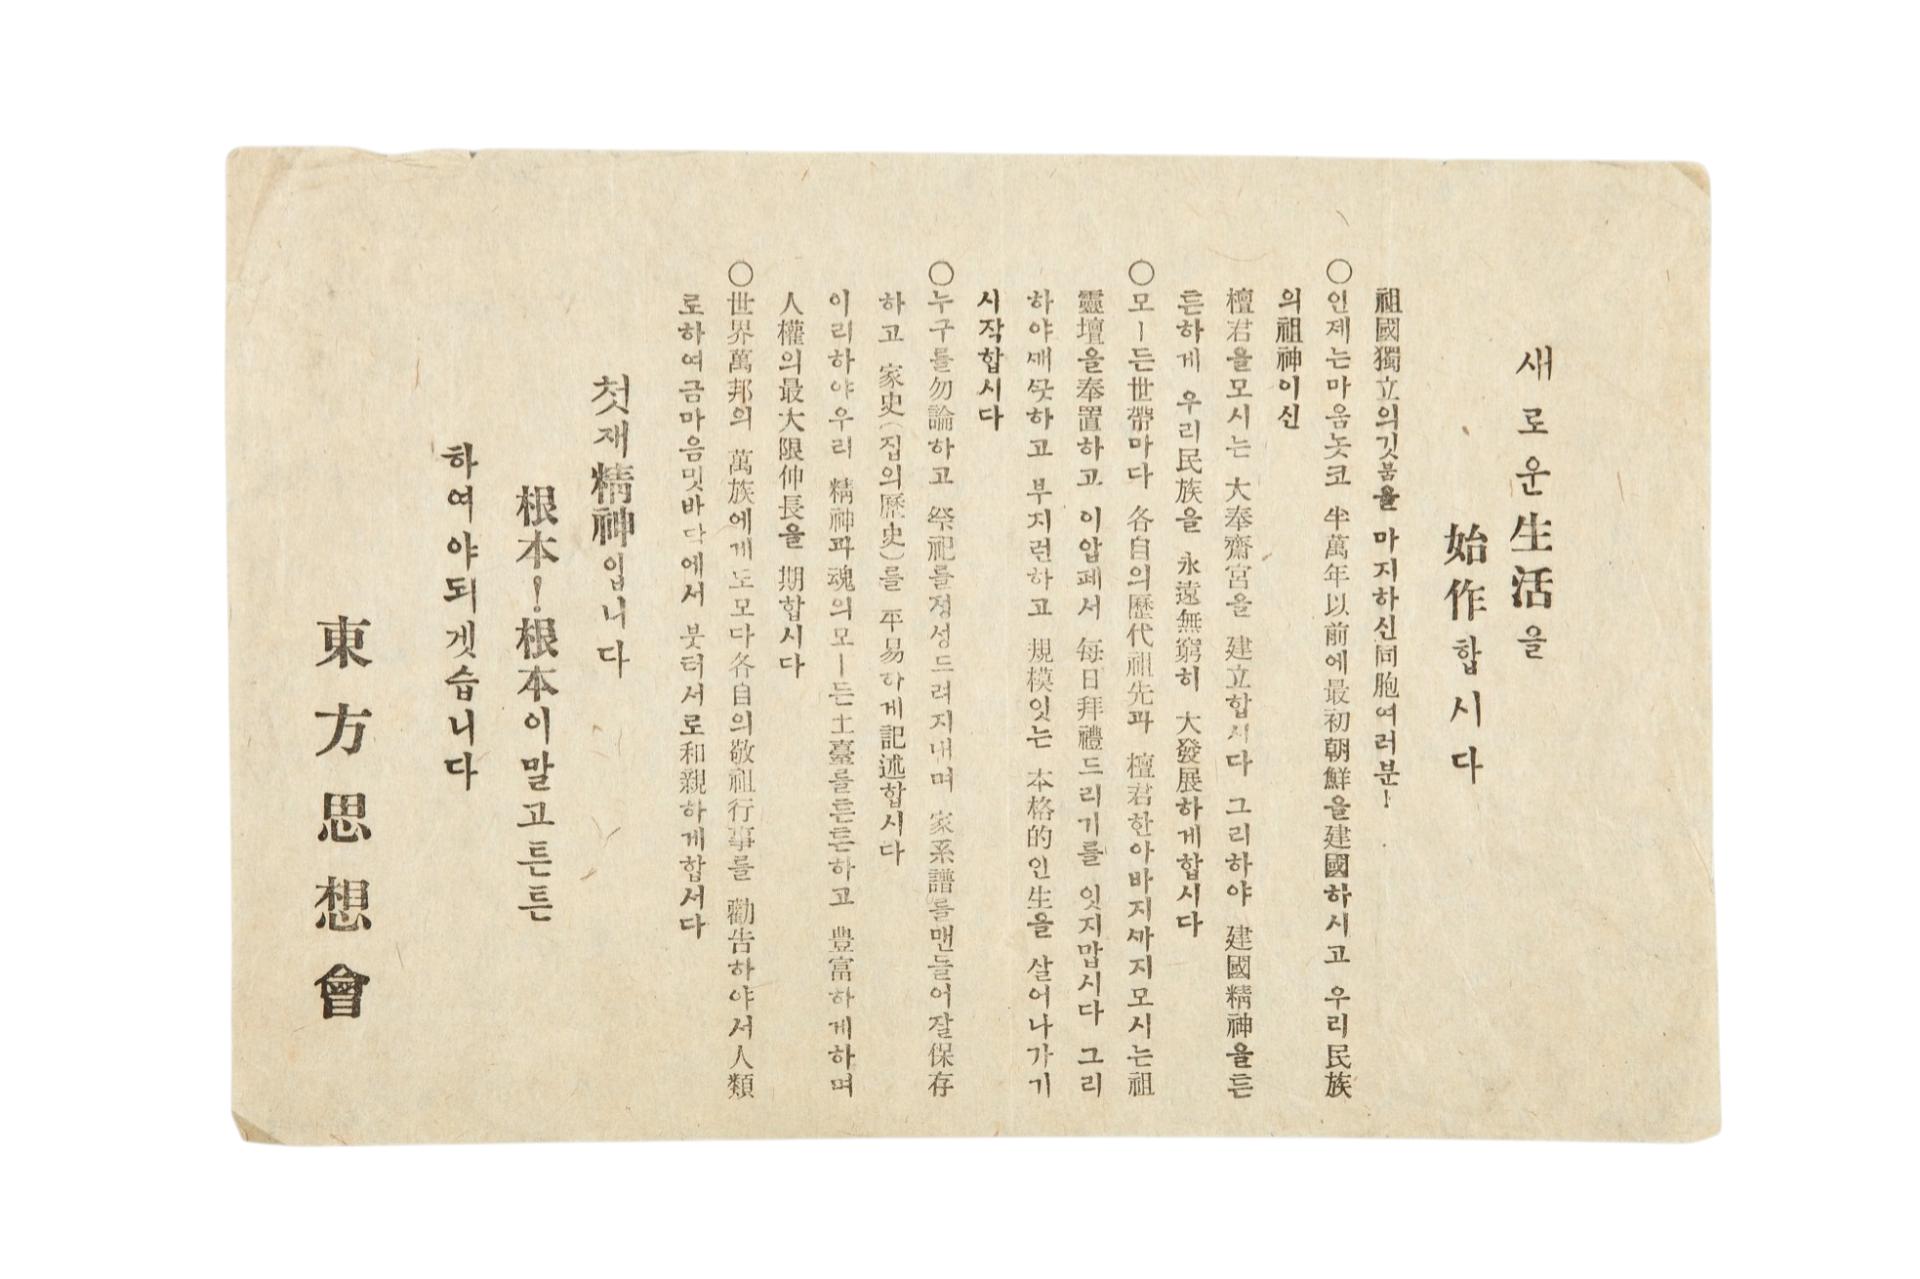 새로운生活을
始作합시다
祖國獨立의깃붐을 마지하신同胞여러분!
○인제는마음놋코 半萬年以前에最初朝鮮을建國하시고 우리民族
의祖神이신
檀君을모시는 大奉齋宮을 建立합시다 그리하야 建國精神을튼
튼하게 우리民族을 永遠無窮히 大發展하게합시다
○모ー든世帶마다 各自의歷代祖先과 檀君한아바지까지모시는祖
靈壇을奉置하고 이압폐서 每日拜禮드리기를 잇지맙시다 그리
하야깨끗하고 부지런하고 規模잇는 本格的인生을 살어나가기
시작합시다
○누구를勿論하고 祭祀를졍성드려지내며 家系譜를맨들어잘保存
하고 家史(집의歷史)를 平易하게記述합시다
이리하야우리 精神과魂의모ー든土臺를튼튼하고 豊富하게하며
人權의最大限伸長을 期합시다
○世界萬邦의 萬族에게도모다各自의敬祖行事를 勸告하야서人類
로하여금마음밋바닥에서 붓터서로和親하게합서다
첫재精神입니다
根本!根本이말고튼튼
하여야되겟습니다
東方思想會